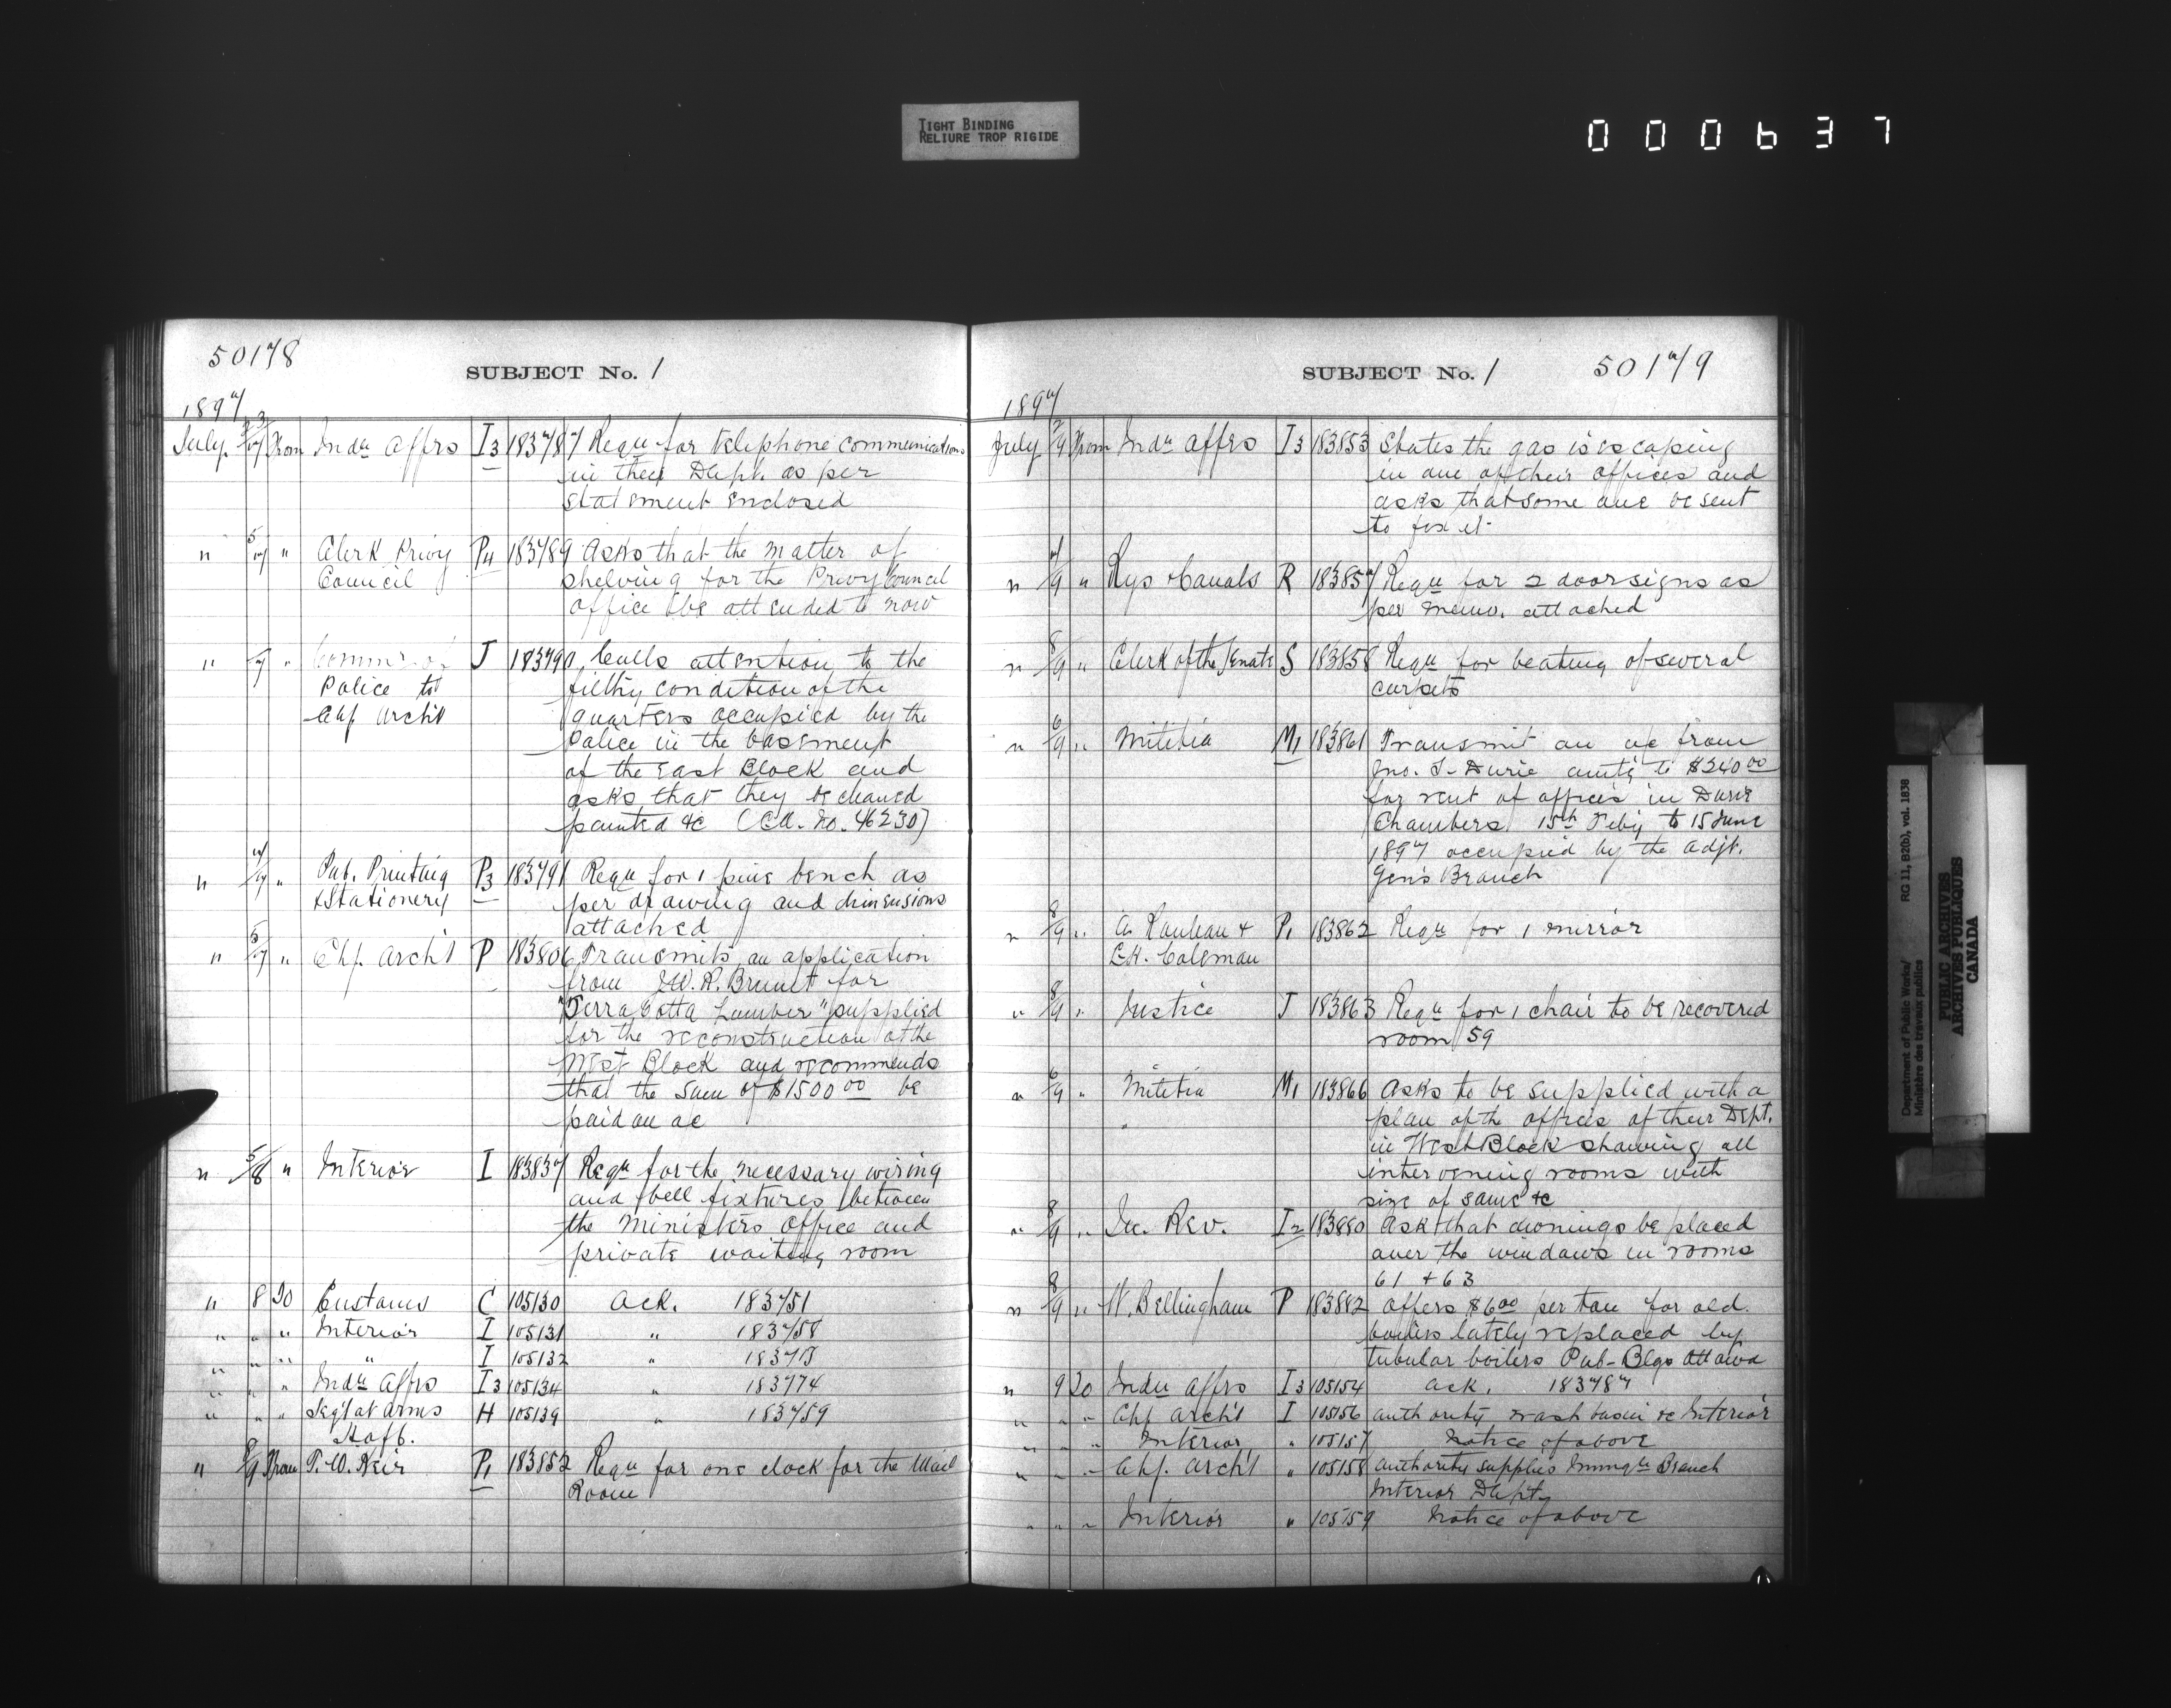 TIGHT BINDING
RELIURE TROP RIGIDE
000637
50178
SUBJECT No. 1
1897
July 3/7 From Indn Affrs I3 183787 Reqn for telephone communications
in their Dept. as per
statement enclosed
" 5/7 " Clerk Privy P4 183789 Asks that the matter of
Council shelving for the Privy Council
office be attended to now
" /7 " Commr of J 183790 Calls attention to the
Police to filthy condition of the
Chf. Archt quarters occupied by the
Police in the basement
of the East Block and
asks that they be cleaned
painted &c (Cd. No. 46230)
" 7/7 " Pub. Printing P3 183791 Reqn for 1 pine bench as
& Stationery per drawing and dimensions
attached
" 5/7 " Chf. Archt P 183806 Transmits an application
from W. R. Brunet for
"Terra Cotta Lumber" supplied
for the reconstruction of the
West Block and recommends
that the sum of $1500 00 be
paid on ac
" 5/8 " Interior I 183837 Reqn for the necessary wiring
and bell fixtures between
the Ministers Office and
private waiting room
" 8 To Customs C 105130 Ack. 183751
" " " Interior I 105131 " 183758
" " " " I 105132 "
" " " Indn Affrs I3 105134 " 183774
" " " Segt at Arms H 105139 " 183759
H of C.
" 8/9 From T. W. Keir P1 183852 Reqn for one clock for the Mail
Room
SUBJECT No. 1 50179
1897
July /9 From Indn Affrs I3 183853 States the gas is escaping
in one of their offices and
asks that some one be sent
to fix it
" 7/9 " Rys & Canals R 183857 Reqn for 2 door signs as
per memo. attached
" 8/9 " Clerk of the Senate S 183858 Reqn for beating of several
carpets
" 6/9 " Militia M1 183861 Transmit an a/c from
Jno. S. Durie amtg to $240 00
for rent of offices in Durie
Chambers 15th Feby to 15 June
1897 occupied by the Adjt.
Gen's Branch
" 8/9 " A. & P1 183862 Reqn for 1 mirror
C.H. Coleman
" 8/9 " Justice J 183863 Reqn for 1 chair to be recovered
room 59
" 6/9 " Militia M1 183866 Asks to be supplied with a
plan of the offices of their Dept.
in West Block showing all
intervening rooms with
size of same &c
" 8/9 " In. Rev. I2 183880 Ask that awnings be placed
over the windows in rooms
61 + 63
" 8/9 " W. Bellingham P 183882 Offers $6 00 per ton for old
boilers lately replaced by
tubular boilers Pub-Blgs Ottawa
" 9 To Indn Affrs I3 105154 Ack. 183787
" " " Chf Archt I 105156 Authority wash basin &c Interior
" " " Interior " 105157 Notice of above
" " " Chf. Archt " 105158 Authority supplies Immgn Branch
Interior Dept.
" " " Interior " 105159 Notice of above
Department of Public Works/ RG 11, B2(b), vol. 1838
Ministère des travaux publics
PUBLIC ARCHIVES
ARCHIVES PUBLIQUES
CANADA